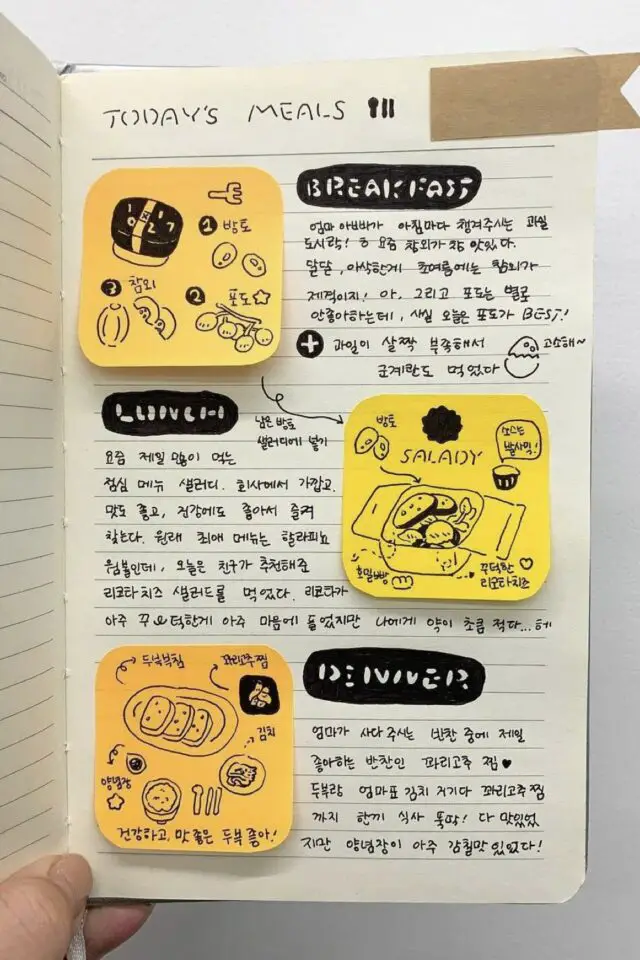 TODAY'S MEALS
BREAKFAST
엄마 아빠가 아침마다 챙겨주시는 과일
도시락! 요즘 참외가 참 맛있다.
달달, 아삭한게 초여름에는 참외가
제격이지! 아, 그리고 포도는 별로
안좋아하는데, 사실 오늘은 포도가 BEST!
+ 과일이 살짝 부족해서
군계란도 먹었다
고소해~
1 방토
3 참외
2 포도
LUNCH
남은 방토
샐러디에 넣기
요즘 제일 많이 먹는
점심 메뉴 샐러디. 회사에서 가깝고,
맛도 좋고, 건강에도 좋아서 즐겨
찾는다. 원래 최애 메뉴는 할라피뇨
웜볼인데, 오늘은 친구가 추천해준
리코타 치즈 샐러드를 먹었다. 리코타가
아주 꾸우덕한게 아주 마음에 들었지만 나에게 양이 초큼 적다... 헤
방토
SALADY
소스는
발사믹!
호밀빵
꾸덕한
리코타치즈
DINNER
두부부침
꽈리고추찜
김치
양념장
건강하고, 맛 좋은 두부 좋아!
엄마가 사다 주시는 반찬 중에 제일
좋아하는 반찬인 꽈리고추 찜 ♥
두부랑 엄마표 김치 거기다 꽈리고추찜
까지 한끼 식사 뚝딱! 다 맛있었
지만 양념장이 아주 감칠맛 있었다!